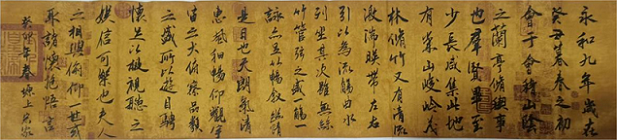 永和九年歲在
癸丑暮春之初
會于會稽山陰
之蘭亭脩稧事
也群賢畢至
少長咸集此地
有崇山峻領茂
林脩竹又有清流
激湍暎帶左右
引以為流觴曲水
列坐其次雖無絲
竹管弦之盛一觴一
詠亦足以暢敘幽情
是日也天朗氣清
惠風和暢仰觀宇
宙之大俯察品類
之盛所以遊目騁
懷足以極視聽之
娛信可樂也夫人
之相與俯仰一世或
取諸懷抱悟言
癸卯年春